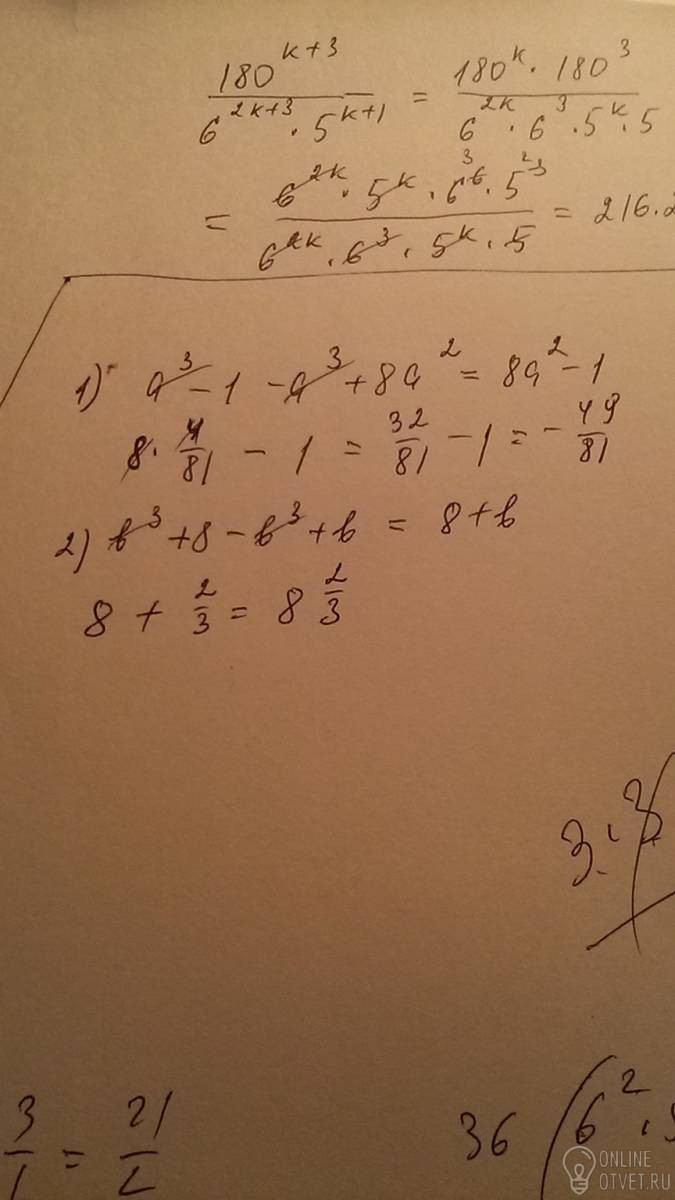 180^{k+3} / 6^{2k+3} · 5^{k+1} = 180^k · 180^3 / 6^{2k} · 6^3 · 5^k · 5
= 6^{2k} · 5^k · 6^6 3 · 5^3 2 / 6^{2k} · 6^3 · 5^k · 5 = 216 · 2
1) a^3 - 1 - a^3 + 8a^2 = 8a^2 - 1
8 · 4/81 - 1 = 32/81 - 1 = - 49/81
2) b^3 + 8 - b^3 + b = 8 + b
8 + 2/3 = 8 2/3
3 · 3
3/1 = 21/2
36 6^2 ·
ONLINE
OTVET.RU